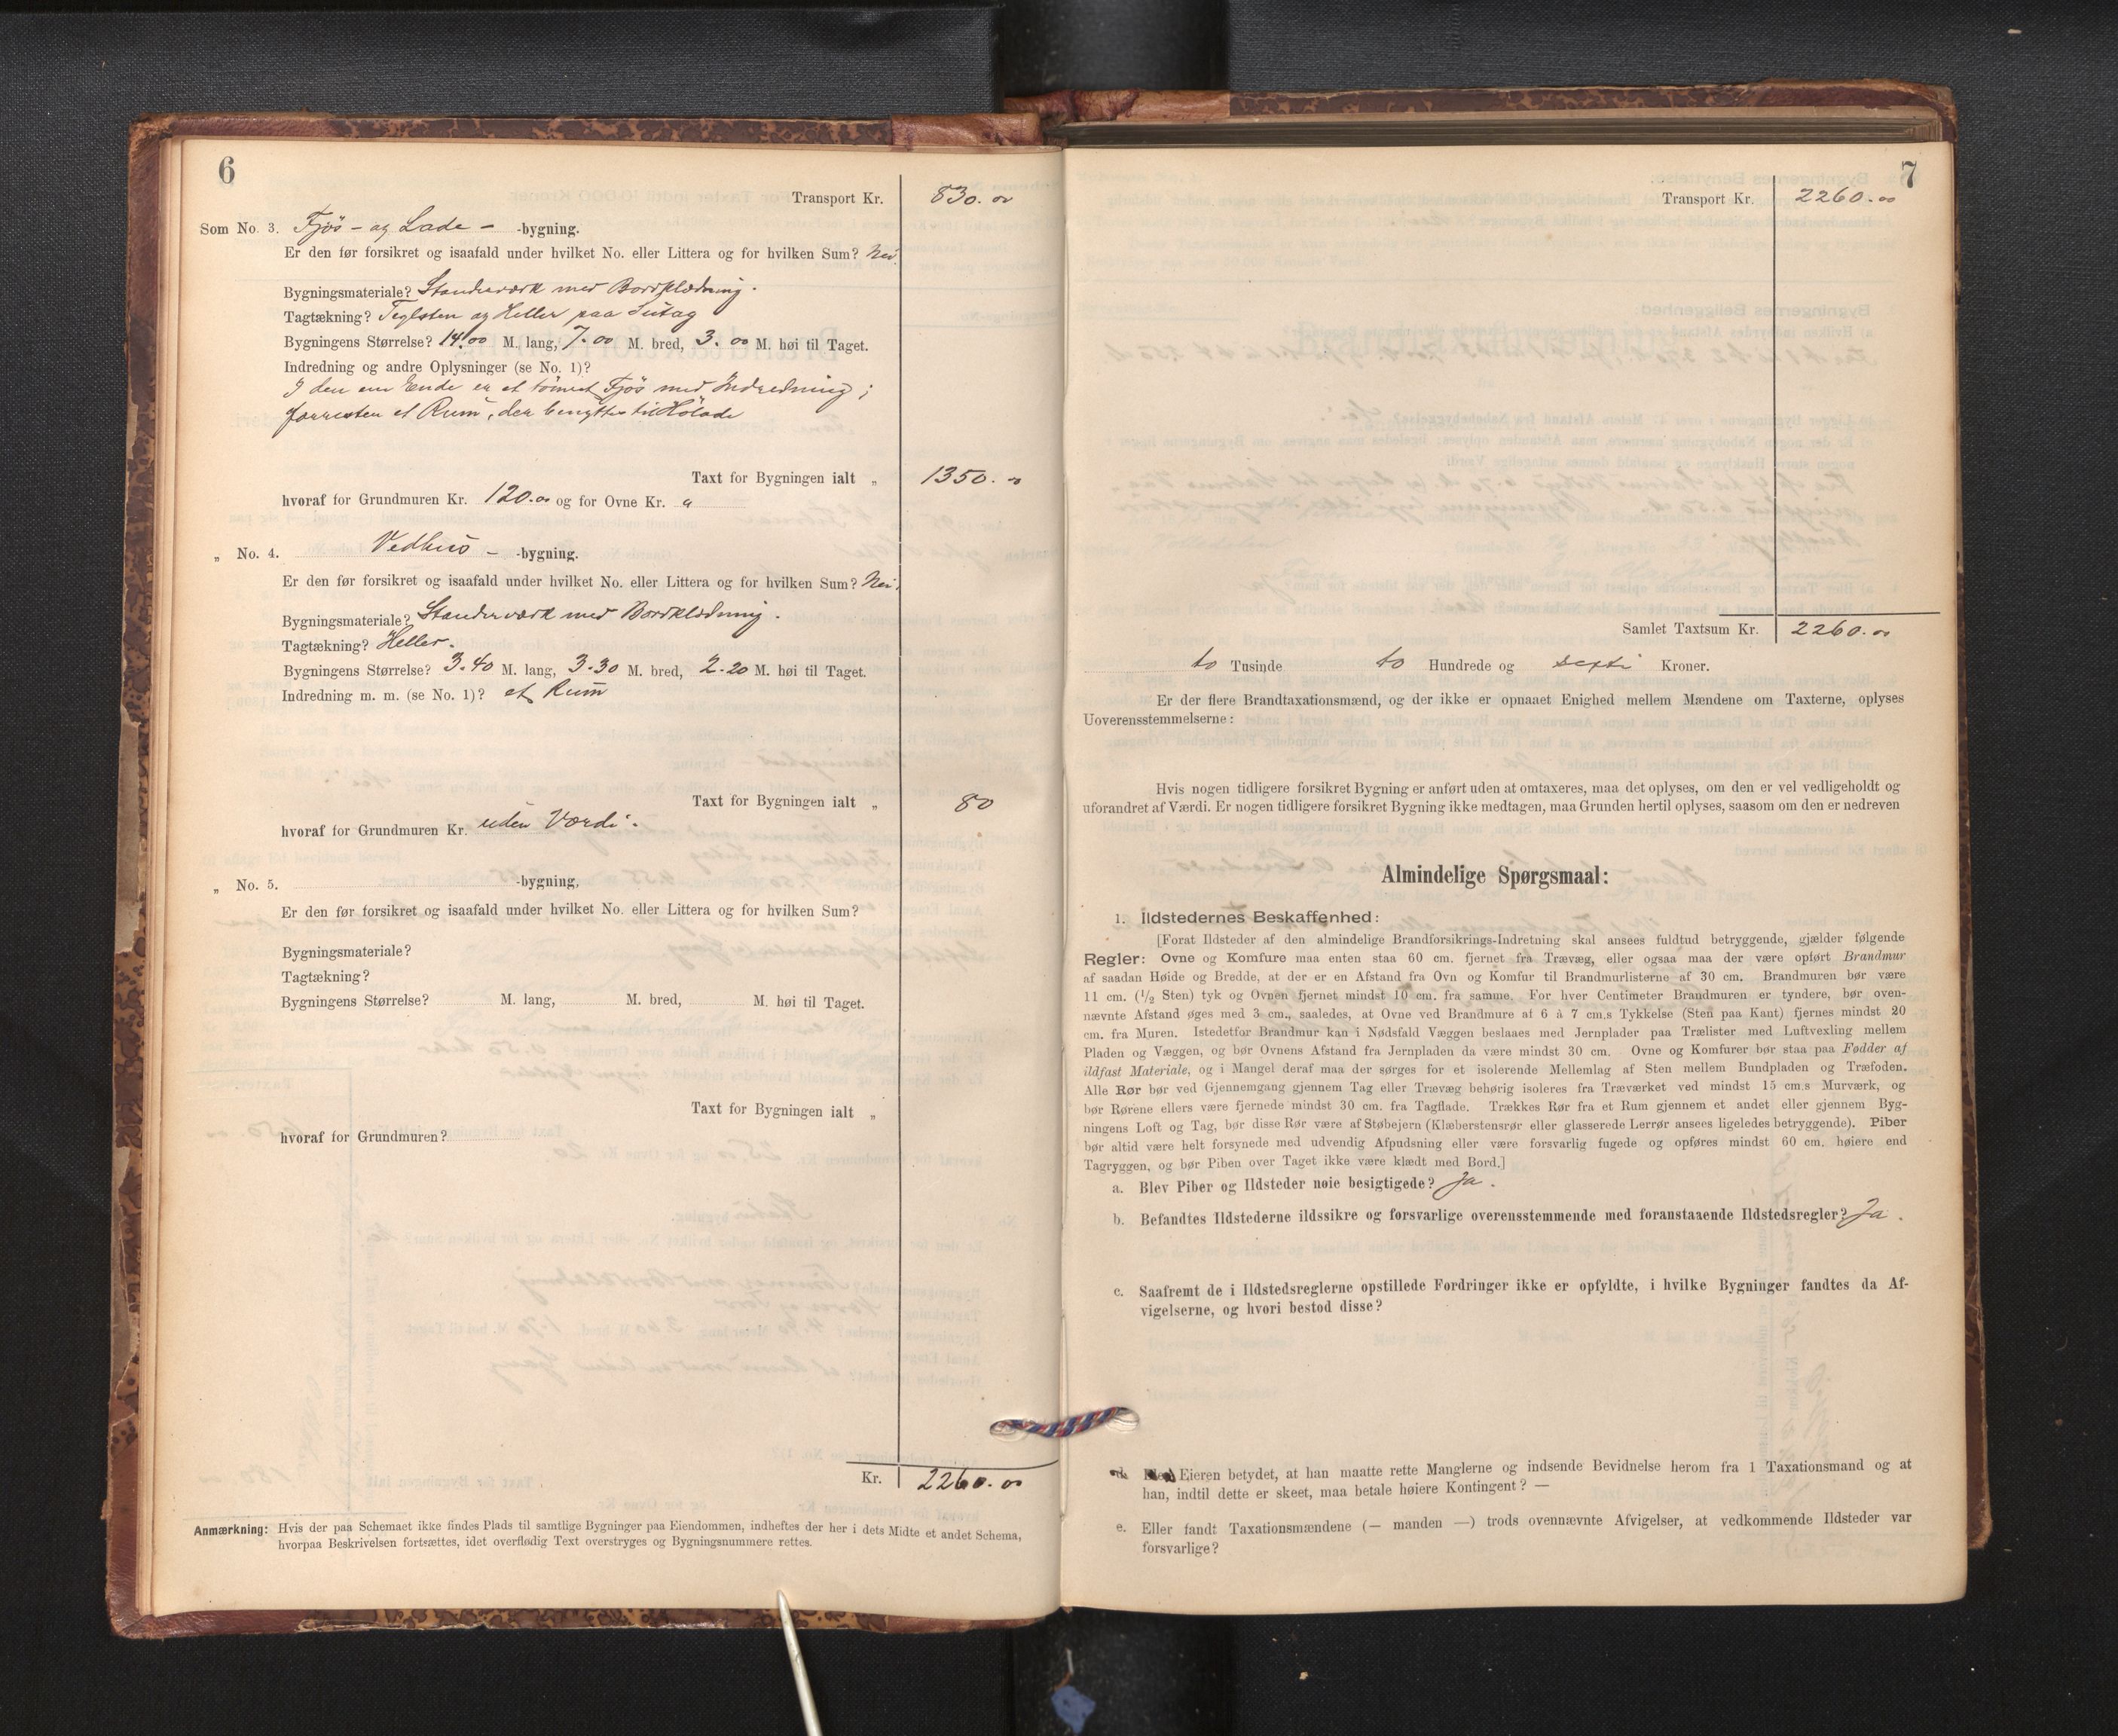 6
Transport Kr. 830.00
Som No. 3. Fjøs- og Lade- -bygning.
Er den før forsikret og isaafald under hvilket No. eller Littera og for hvilken Sum? Nei.
Bygningsmateriale? Standerværk med Bordklædning.
Tagtækning? Teglsten og Heller paa Sutag
Bygningens Størrelse? 14.00 M. lang, 7.00 M. bred, 3.00 M. høi til Taget.
Indredning og andre Oplysninger (se No. 1)?
I den ene Ende er et tømret Fjøs med Indredning;
forresten et Rum, der benyttes til Hølade
Taxt for Bygningen ialt „ 1350.00
hvoraf for Grundmuren Kr. 120.00 og for Ovne Kr. „
„ No. 4. Vedhus- -bygning.
Er den før forsikret og isaafald under hvilket No. eller Littera og for hvilken Sum? Nei.
Bygningsmateriale? Standerværk med Bordklædning.
Tagtækning? Heller.
Bygningens Størrelse? 3.40 M. lang, 3.30 M. bred, 2.20 M. høi til Taget.
Indredning m. m. (se No. 1)? et Rum
Taxt for Bygningen ialt „ 80
hvoraf for Grundmuren Kr. uden Værdi.
„ No. 5. -bygning,
Er den før forsikret og isaafald under hvilket No. eller Littera og for hvilken Sum?
Bygningsmateriale?
Tagtækning?
Bygningens Størrelse? M. lang, M. bred, M. høi til Taget.
Taxt for Bygningen ialt „
hvoraf for Grundmuren?
Kr. 2260.00
Anmærkning: Hvis der paa Schemaet ikke findes Plads til samtlige Bygninger paa Eiendommen, indheftes der her i dets Midte et andet Schema,
hvorpaa Beskrivelsen fortsættes, idet overflødig Text overstryges og Bygningsnummere rettes.
7
Transport Kr. 2260.00
Samlet Taxtsum Kr. 2260.00
to Tusinde to Hundrede og sexti Kroner.
Er der flere Brandtaxationsmænd, og der ikke er opnaaet Enighed mellem Mændene om Taxterne, oplyses
Uoverensstemmelserne:
Hvis nogen tidligere forsikret Bygning er anført uden at omtaxeres, maa det oplyses, om den er vel vedligeholdt og
uforandret af Værdi. Er nogen tidligere forsikret Bygning ikke medtagen, maa Grunden hertil oplyses, saasom om den er nedreven
Almindelige Spørgsmaal:
1. Ildstedernes Beskaffenhed:
[Forat Ildsteder af den almindelige Brandforsikrings-Indretning skal ansees fuldtud betryggende, gjælder følgende
Regler: Ovne og Komfure maa enten staa 60 cm. fjernet fra Trævæg, eller ogsaa maa der være opført Brandmur
af saadan Høide og Bredde, at der er en Afstand fra Ovn og Komfur til Brandmurlisterne af 30 cm. Brandmuren bør være
11 cm. (1/2 Sten) tyk og Ovnen fjernet mindst 10 cm. fra samme. For hver Centimeter Brandmuren er tyndere, bør oven-
nævnte Afstand øges med 3 cm., saaledes, at Ovne ved Brandmure af 6 à 7 cm.s Tykkelse (Sten paa Kant) fjernes mindst 20
cm. fra Muren. Istedetfor Brandmur kan i Nødsfald Væggen beslaaes med Jernplader paa Trælister med Luftvexling mellem
Pladen og Væggen, og bør Ovnens Afstand fra Jernpladen da være mindst 30 cm. Ovne og Komfurer bør staa paa Fødder af
ildfast Materiale, og i Mangel deraf maa der sørges for et isolerende Mellemlag af Sten mellem Bundpladen og Træfoden.
Alle Rør bør ved Gjennemgang gjennem Tag eller Trævæg behørig isoleres fra Træværket ved mindst 15 cm.s Murværk, og
bør Rørene ellers være fjernede mindst 30 cm. fra Tagflade. Trækkes Rør fra et Rum gjennem et andet eller gjennem Byg-
ningens Loft og Tag, bør disse Rør være af Støbejern (Klæberstensrør eller glasserede Lerrør ansees ligeledes betryggende). Piber
bør altid være helt forsynede med udvendig Afpudsning eller være forsvarlig fugede og opføres mindst 60 cm. høiere end
Tagryggen, og bør Piben over Taget ikke være klædt med Bord.]
a. Blev Piber og Ildsteder nøie besigtigede? Ja.
b. Befandtes Ildstederne ildssikre og forsvarlige overensstemmende med foranstaaende Ildstedsregler? Ja.
c. Saafremt de i Ildstedsreglerne opstillede Fordringer ikke er opfyldte, i hvilke Bygninger fandtes da Af-
vigelserne, og hvori bestod disse?
Eieren betydet, at han maatte rette Manglerne og indsende Bevidnelse herom fra 1 Taxationsmand og at
han, indtil dette er skeet, maa betale høiere Kontingent? —
e. Eller fandt Taxationsmændene (— manden —) trods ovennævnte Afvigelser, at vedkommende Ildsteder var
forsvarlige?